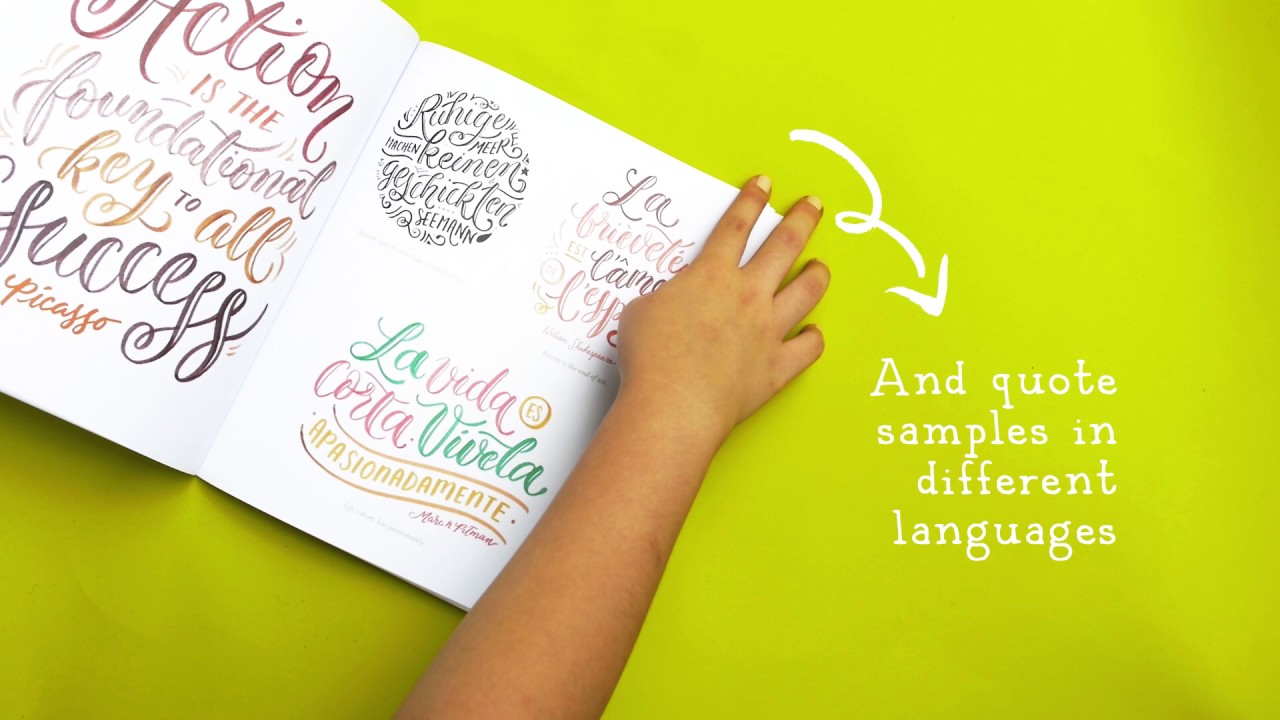 Action
IS THE
foundational
key TO all
Success
Picasso
Ruhige
MEERE
MACHEN keinen
geschickten
SEEMANN
La
brièveté
EST l'âme
DE
William Shakespeare
La vida
ES
Corta. Vívela
APASIONADAMENTE.
Marc H Pitman
And quote
samples in
different
languages